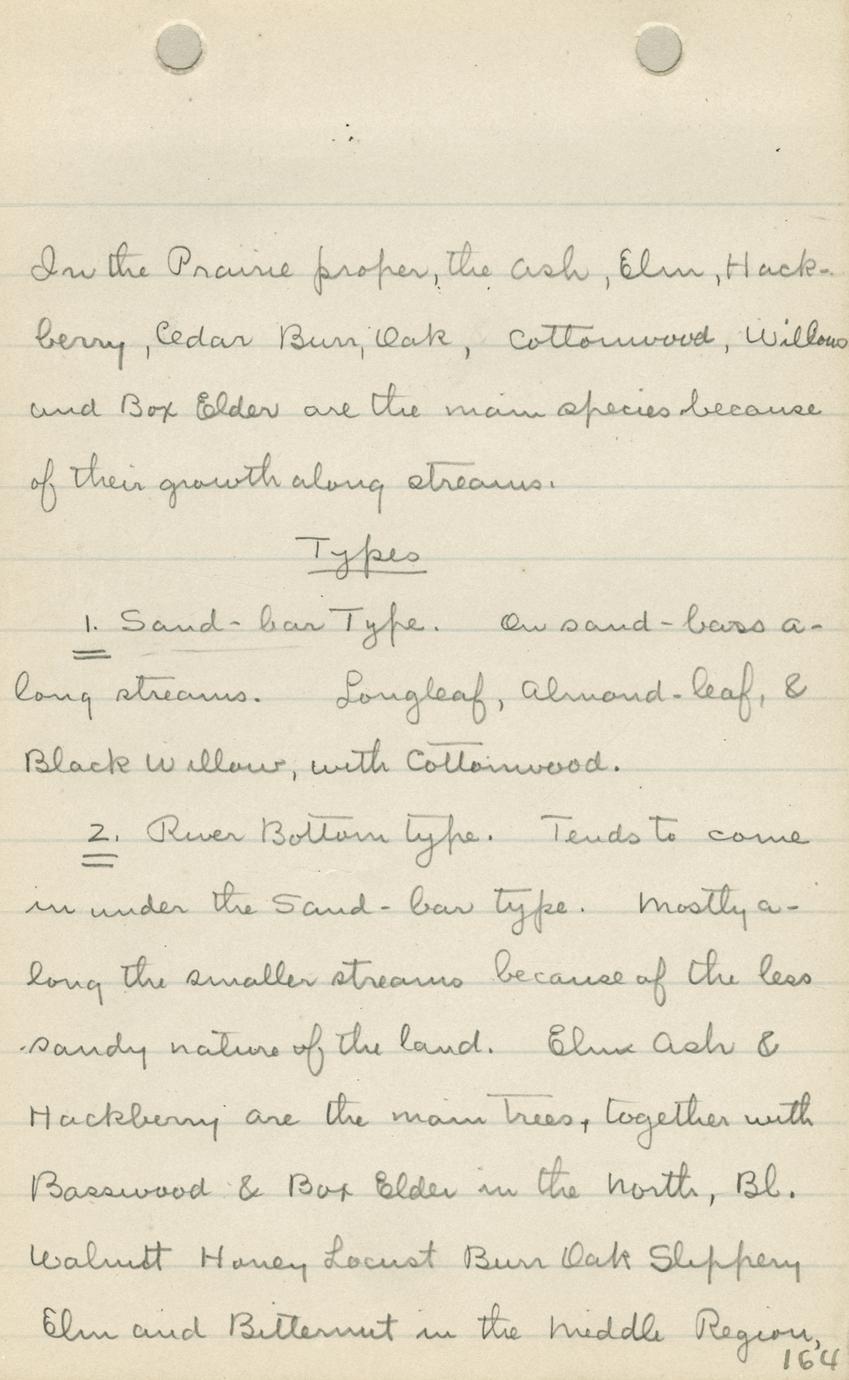 In the Prairie proper, the Ash, Elm, Hack-
berry, Cedar Burr, Oak, Cottonwood, Willows
and Box Elder are the main species because
of their growth along streams.
Types
1. Sand-bar Type. On sand-bars a-
long streams. Longleaf, Almond-leaf, &
Black Willow, with Cottonwood.
2. River Bottom type. Tends to come
in under the Sand-bar type. Mostly a-
long the smaller streams because of the less
sandy nature of the land. Elm Ash &
Hackberry are the main trees, together with
Basswood & Box Elder in the North, Bl.
Walnutt Honey Locust Burr Oak Slippery
Elm and Bitternut in the Middle Region,
164